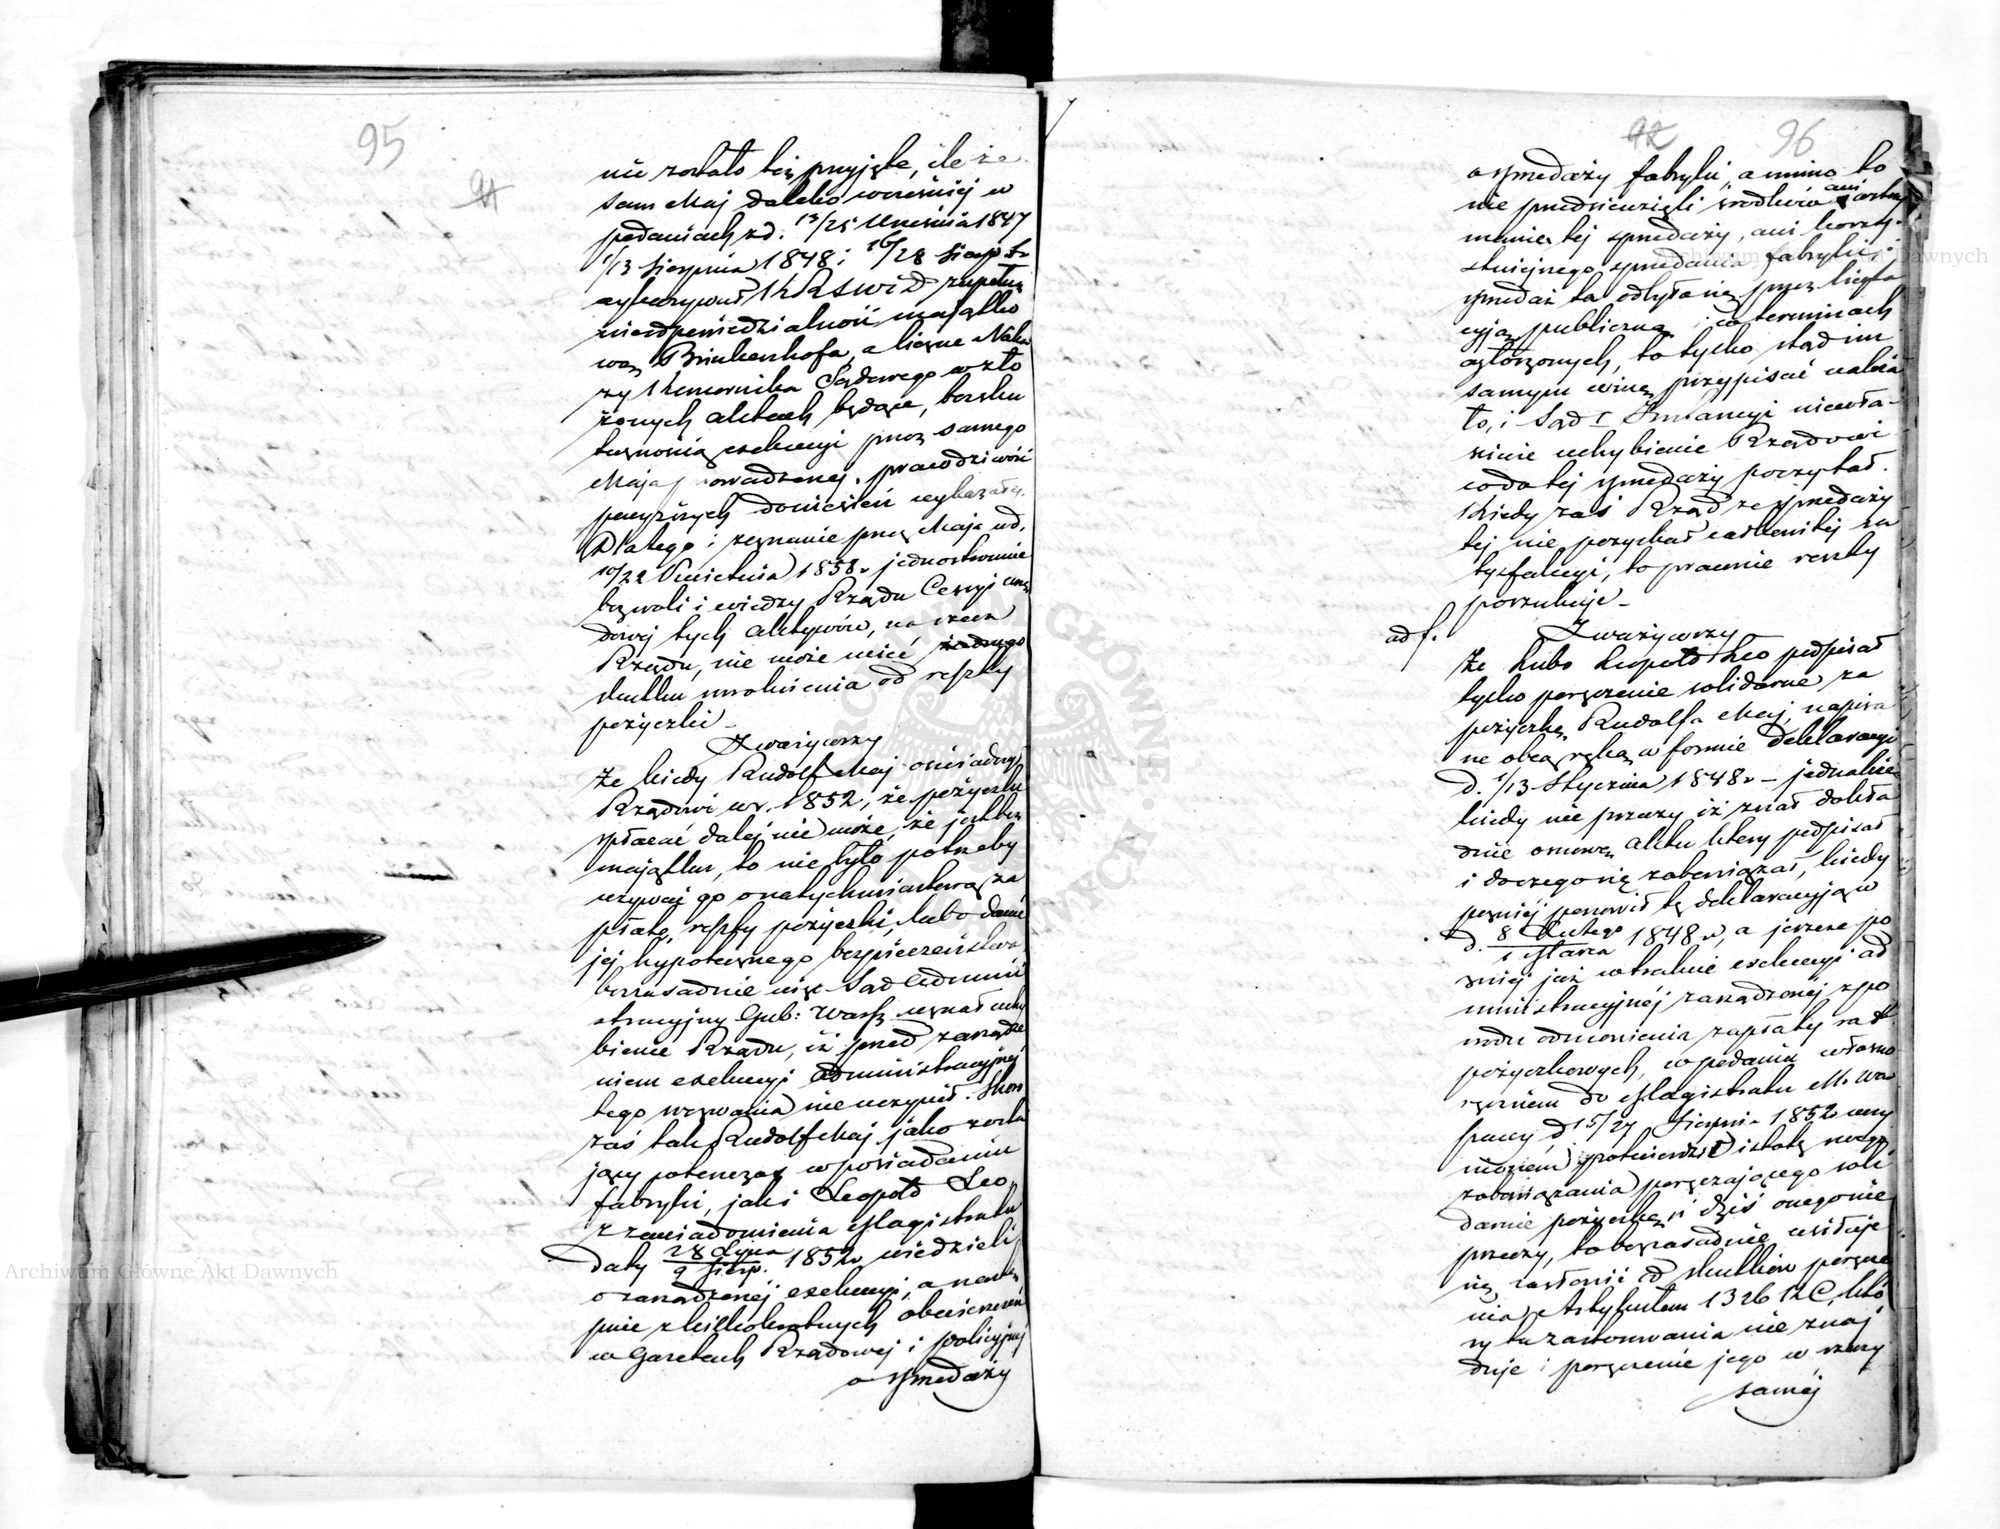 95
91
nie zostało też przyjęte, ile że
sam Maj daleko wcześniej w
podaniach z d. 13/25 Września 1847
1/13 Sierpnia 1848 i 16/28 Sierp.
wykazywał zupełną
nieodpowiedzialność majątko
wą Brinkenhofa, a liczne Naka
zy Komornika Sądowego w zło
żonych aktach będące, bezsku
teczność exekucyi przez samego
Maja prowadzonej, prawdziwość
powyższych doniesień wykazały.
Dlatego i zeznanie przez Maja ud.
10/22 Kwietnia 1858 r jednostronnie
bez woli i wiedzy Rządu Cessyi urzę
dowej tych aktywów, na rzecz
Rządu, nie może mieć żadnego
skutku uwolnienia od reszty
pożyczki –
Zważywszy
Że kiedy Rudolf Maj oświadczył
Rządowi w r. 1852, że pożyczki
spłacać dalej nie może, że jest bez
majątku, to nie było potrzeby
wzywać go o natychmiastową za
płatę, reszty pożyczki, lub o danie
jej hypotecznego bezpieczeństwa,
bezzasadnie więc Sąd Admini
stracyjny Gub: Warsz. uznał uchy
bienie Rządu, iż przed zarządze
niem exekucyi administracyjnej
tego wezwania nie uczynił. Skoro
zaś tak Rudolf Maj jako zosta
jący potenczas w posiadaniu
fabryki, jak i Leopold Leo,
z zawiadomienia Magistratu
daty 28 Lipca / 9 Sierp. 1852 r wiedzieli
o zarządzonej exekucyi, a nastę
pnie z kilkokrotnych obwieszczeń
w Gazetach Rządowej i policyjnej
o sprzedaży
92
96
o sprzedaży fabryki, a mimo to
nie przedsięwzięli środków ani wstrzy
mania tej sprzedaży, ani korzy-
stniejszego sprzedania fabryki i
sprzedaż ta odbyta przez licyta
cyją publiczną i w terminach
ogłoszonych, to tylko stąd im
samym winę przypisać należa
ło, i Sąd I Instancyi niewła-
ściwie uchybienie Rządowi
co do tej sprzedaży poczytał.
Kiedy zaś Rząd ze sprzedaży
tej nie pozyskał całkowitej sa
tysfakcyi, to prawnie reszty
poszukuje –
ad f.
Zważywszy
Że lubo Leopold Leo podpisał
tylko poręczenie solidarne za
pożyczkę Rudolfa Maj, napisa
ne obcą ręką w formie deklaracyi
d. 1/13 Stycznia 1848 r – jednakże
kiedy nie przeczy iż znał dokła
dnie osnowę aktu który podpisał
i do czego się zobowiązał, kiedy
później ponowił tę deklaracyją w
d. 8 Lutego / 1 Marca 1848 r, a jeszcze pó
źniej już w trakcie exekucyi ad
ministracyjnej zarządzonej z po
wodu odmówienia zapłaty rat
pożyczkowych, w podaniu własno
ręcznem do Magistratu M. War
szawy d 15/27 Sierpnia 1852 wy
mownem potwierdził istotę swego
zobowiązania poręczającego soli
darnie pożyczkę, i dziś onego nie
przeczy, to bezzasadnie usiłuje
się zasłonić od skutków poręcze
nia, Artykułem 1326 K C, któ
ry tu zastosowania nie znaj
duje i poręczenie jego w rzeczy
samej
Archiwum Główne Akt Dawnych
Archiwum Główne Akt Dawnych
ARCHIWUM GŁÓWNE AKT DAWNYCH